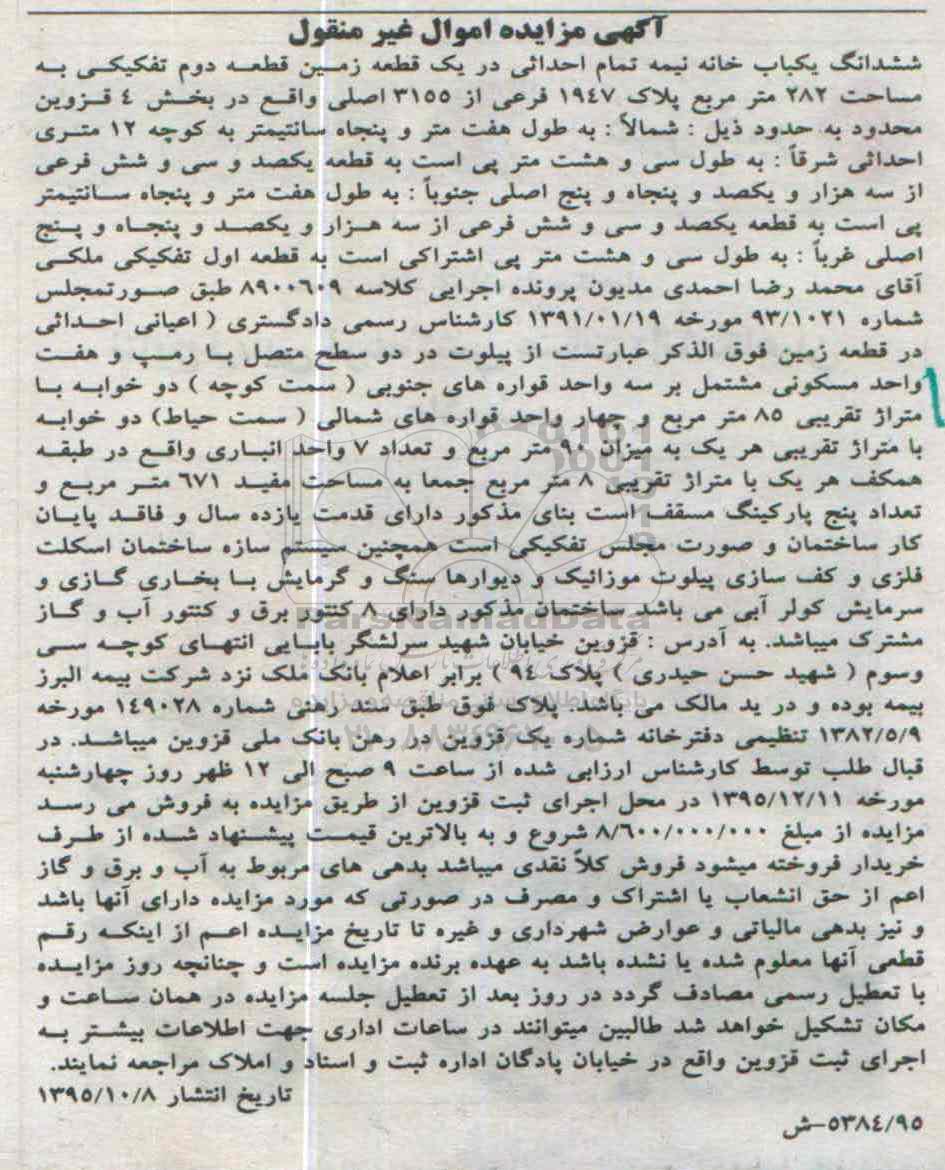 آگهی مزایده اموال غیر منقول
ششدانگ یکباب خانه نیمه تمام احداثی در یک قطعه زمین قطعه دوم تفکیکی به
مساحت ۲۸۲ متر مربع پلاک ۱۹۴۷ فرعی از ۳۱۵۵ اصلی واقع در بخش ٤ قزوین
محدود به حدود ذیل : شمالاً : به طول هفت متر و پنجاه سانتیمتر به کوچه ۱۲ متری
احداثی شرقاً : به طول سی و هشت متر پی است به قطعه یکصد و سی و شش فرعی
از سه هزار و یکصد و پنجاه و پنج اصلی جنوباً : به طول هفت متر و پنجاه سانتیمتر
پی است به قطعه یکصد و سی و شش فرعی از سه هزار و یکصد و پنجاه و پنج
اصلی غرباً : به طول سی و هشت متر پی اشتراکی است به قطعه اول تفکیکی ملکی
آقای محمد رضا احمدی مدیون پرونده اجرایی کلاسه ۸۹۰۰۶۰۹ طبق صورتمجلس
شماره ۹۳/۱۰۲۱ مورخه ۱۳۹۱/۰۱/۱۹ کارشناس رسمی دادگستری ( اعیانی احداثی
در قطعه زمین فوق الذکر عبارتست از پیلوت در دو سطح متصل با رمپ و هفت
واحد مسکونی مشتمل بر سه واحد قواره های جنوبی ( سمت کوچه ) دو خوابه با
متراژ تقریبی ۸۵ متر مربع و چهار واحد قواره های شمالی ( سمت حیاط) دو خوابه
با متراژ تقریبی هر یک به میزان ۹۰ متر مربع و تعداد ۷ واحد انباری واقع در طبقه
همکف هر یک با متراژ تقریبی ۸ متر مربع جمعا به مساحت مفید ۶۷۱ متر مربع و
تعداد پنج پارکینگ مسقف است بنای مذکور دارای قدمت یازده سال و فاقد پایان
کار ساختمان و صورت مجلس تفکیکی است همچنین سیستم سازه ساختمان اسکلت
فلزی و کف سازی پیلوت موزائیک و دیوارها سنگ و گرمایش با بخاری گازی و
سرمایش کولر آبی می باشد ساختمان مذکور دارای ۸ کنتور برق و کنتور آب و گاز
مشترک میباشد. به آدرس : قزوین خیابان شهید سرلشگر بابایی انتهای کوچه سی
وسوم ( شهید حسن حیدری ) پلاک ۹۴ ) برابر اعلام بانک ملک نزد شرکت بیمه البرز
بیمه بوده و در ید مالک می باشد. پلاک فوق طبق سند رهنی شماره ۱۴۹۰۲۸ مورخه
۱۳۸۲/۵/۹ تنظیمی دفترخانه شماره یک قزوین در رهن بانک ملی قزوین میباشد. در
قبال طلب توسط کارشناس ارزابی شده از ساعت ۹ صبح الی ۱۲ ظهر روز چهارشنبه
مورخه ۱۳۹۵/۱۲/۱۱ در محل اجرای ثبت قزوین از طریق مزایده به فروش می رسد
مزایده از مبلغ ۸/۶۰۰/۰۰۰/۰۰۰ شروع و به بالاترین قیمت پیشنهاد شده از طرف
خریدار فروخته میشود فروش کلاً نقدی میباشد بدهی های مربوط به آب و برق و گاز
اعم از حق انشعاب یا اشتراک و مصرف در صورتی که مورد مزایده دارای آنها باشد
و نیز بدهی مالیاتی و عوارض شهرداری و غیره تا تاریخ مزایده اعم از اینکه رقم
قطعی آنها معلوم شده یا نشده باشد به عهده برنده مزایده است و چنانچه روز مزایده
با تعطیل رسمی مصادف گردد در روز بعد از تعطیل جلسه مزایده در همان ساعت و
مکان تشکیل خواهد شد طالبین میتوانند در ساعات اداری جهت اطلاعات بیشتر به
اجرای ثبت قزوین واقع در خیابان پادگان اداره ثبت و اسناد و املاک مراجعه نمایند.
تاریخ انتشار ۱۳۹۵/۱۰/۸
۵۳۸٤/۹۵-ش
ParsNamadData